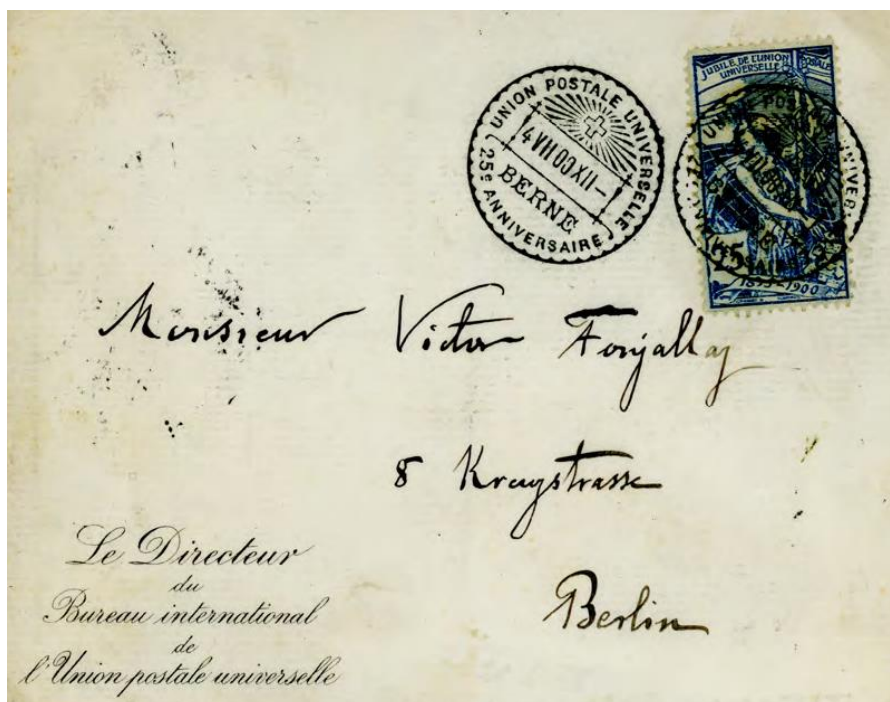 UNION POSTALE UNIVERSELLE
4 VII 00 XII –
BERNE
25e ANNIVERSAIRE
JUBILÉ DE L'UNION POSTALE
UNIVERSELLE
25
1875–1900
Monsieur Victor
8
Berlin
Le Directeur
du
Bureau international
de
l'Union postale universelle